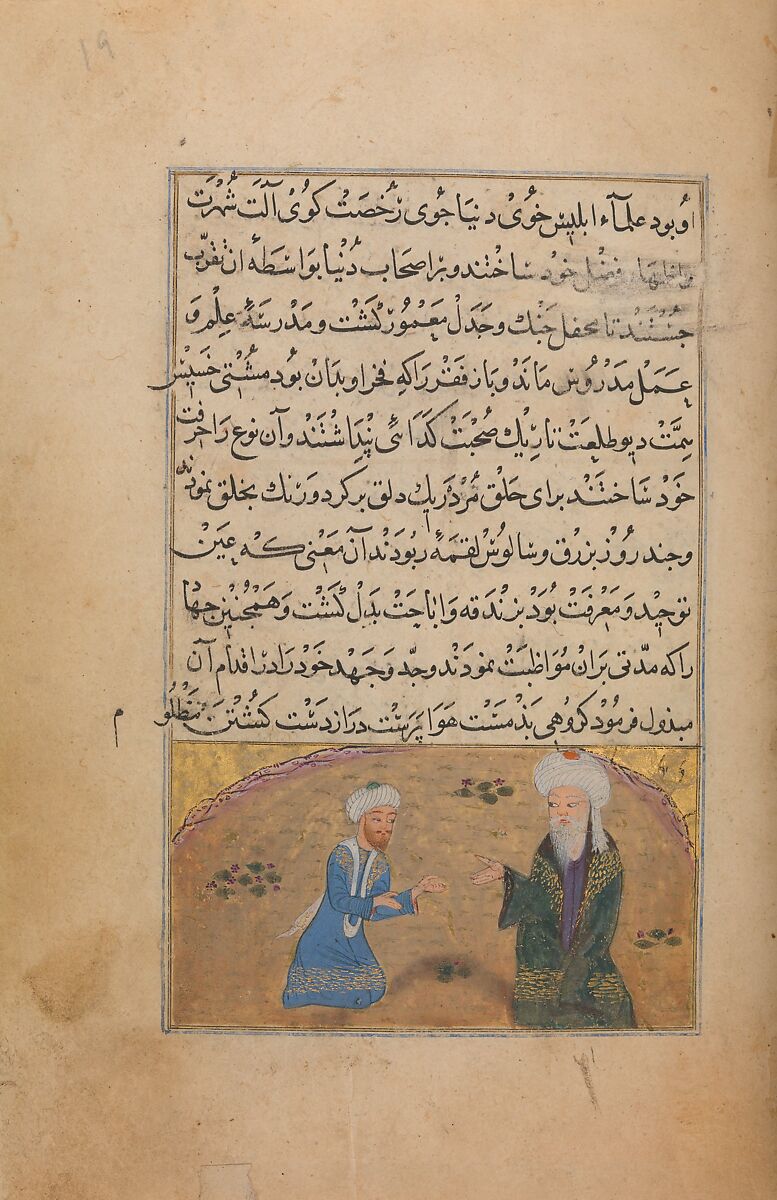 او بود علمآء ابلیس خوی دنیا جوی رخصت کوی آلت شهرت
فضل خود ساختند و بر اصحاب دنیا بواسطهٔ ان تقرّب
جستند تا محفل جنك و جدل معمور کشت و مدرسهٔ علم و
عمل مدروس ماند و باز فقر را که فخر او بدان بود مشتی خسیس
همّت دیو طلعت تاریك صحبت کدائی پنداشتند و آن نوع را حرفت
خود ساختند برای حلق مرد ریك دلق بر کرد و رنك بخلق نمودند
و جند روز بزرق و سالوس لقمهٔ ربودند آن معنی که عین
توحید و معرفت بود بزندقه و اباحت بدل کشت و همجنین جهاد
را که مدّتی بران مواظبت نمودند و جدّ و جهد خود را در اقدام آن
مبذول فرمود کروهی بذمست هوا پرست دراز دست کشتن مظلو
م